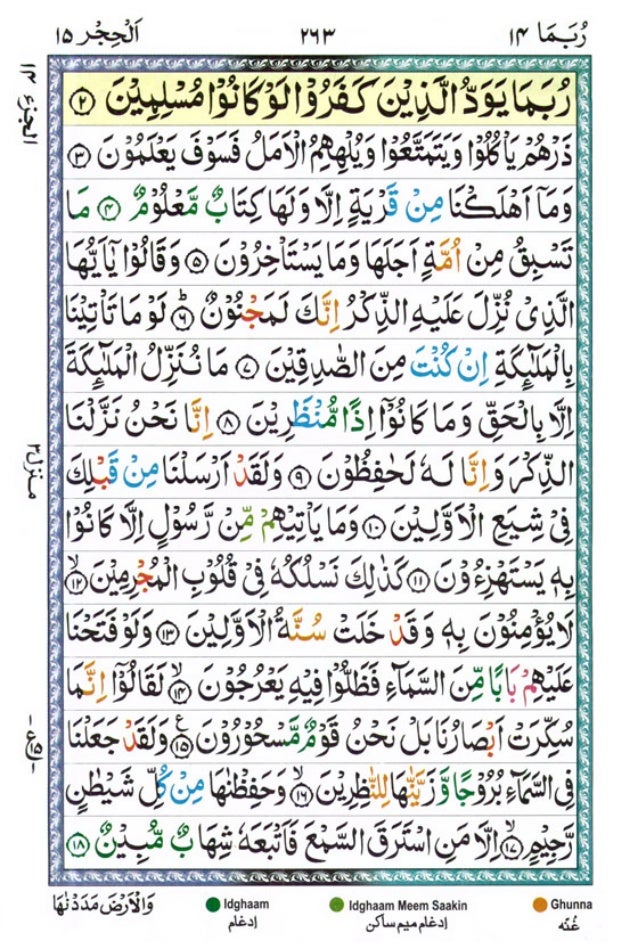 رُبَمَا ١٤
٢٦٣
اَلْحِجْر ١٥
رُبَمَا يَوَدُّ الَّذِيْنَ كَفَرُوْا لَوْ كَانُوْا مُسْلِمِيْنَ ﴿٢﴾
ذَرْهُمْ يَاْكُلُوْا وَيَتَمَتَّعُوْا وَيُلْهِهِمُ الْاَمَلُ فَسَوْفَ يَعْلَمُوْنَ ﴿٣﴾
وَمَآ اَهْلَكْنَا مِنْ قَرْيَةٍ اِلَّا وَلَهَا كِتَابٌ مَّعْلُوْمٌ ﴿٤﴾ مَا
تَسْبِقُ مِنْ اُمَّةٍ اَجَلَهَا وَمَا يَسْتَاْخِرُوْنَ ﴿٥﴾ وَقَالُوْا يٰٓاَيُّهَا
الَّذِىْ نُزِّلَ عَلَيْهِ الذِّكْرُ اِنَّكَ لَمَجْنُوْنٌ ﴿٦﴾ؕ لَوْ مَا تَاْتِيْنَا
بِالْمَلٰٓئِكَةِ اِنْ كُنْتَ مِنَ الصّٰدِقِيْنَ ﴿٧﴾ مَا نُنَزِّلُ الْمَلٰٓئِكَةَ
اِلَّا بِالْحَقِّ وَمَا كَانُوْٓا اِذًا مُّنْظَرِيْنَ ﴿٨﴾ اِنَّا نَحْنُ نَزَّلْنَا
الذِّكْرَ وَاِنَّا لَهٗ لَحٰفِظُوْنَ ﴿٩﴾ وَلَقَدْ اَرْسَلْنَا مِنْ قَبْلِكَ
فِىْ شِيَعِ الْاَوَّلِيْنَ ﴿١٠﴾ وَمَا يَاْتِيْهِمْ مِّنْ رَّسُوْلٍ اِلَّا كَانُوْا
بِهٖ يَسْتَهْزِءُوْنَ ﴿١١﴾ كَذٰلِكَ نَسْلُكُهٗ فِىْ قُلُوْبِ الْمُجْرِمِيْنَ ﴿١٢﴾ۙ
لَا يُؤْمِنُوْنَ بِهٖ وَقَدْ خَلَتْ سُنَّةُ الْاَوَّلِيْنَ ﴿١٣﴾ وَلَوْ فَتَحْنَا
عَلَيْهِمْ بَابًا مِّنَ السَّمَآءِ فَظَلُّوْا فِيْهِ يَعْرُجُوْنَ ﴿١٤﴾ۙ لَقَالُوْٓا اِنَّمَا
سُكِّرَتْ اَبْصَارُنَا بَلْ نَحْنُ قَوْمٌ مَّسْحُوْرُوْنَ ﴿١٥﴾ وَلَقَدْ جَعَلْنَا
فِى السَّمَآءِ بُرُوْجًا وَّزَيَّنّٰهَا لِلنّٰظِرِيْنَ ﴿١٦﴾ۙ وَحَفِظْنٰهَا مِنْ كُلِّ شَيْطٰنٍ
رَّجِيْمٍ ﴿١٧﴾ۙ اِلَّا مَنِ اسْتَرَقَ السَّمْعَ فَاَتْبَعَهٗ شِهَابٌ مُّبِيْنٌ ﴿١٨﴾
الجزء ١٣
منزل ٣
وَالْاَرْضَ مَدَدْنٰهَا
Idghaam
إدغام
Idghaam Meem Saakin
إدغام ميم ساكن
Ghunna
غُنّه